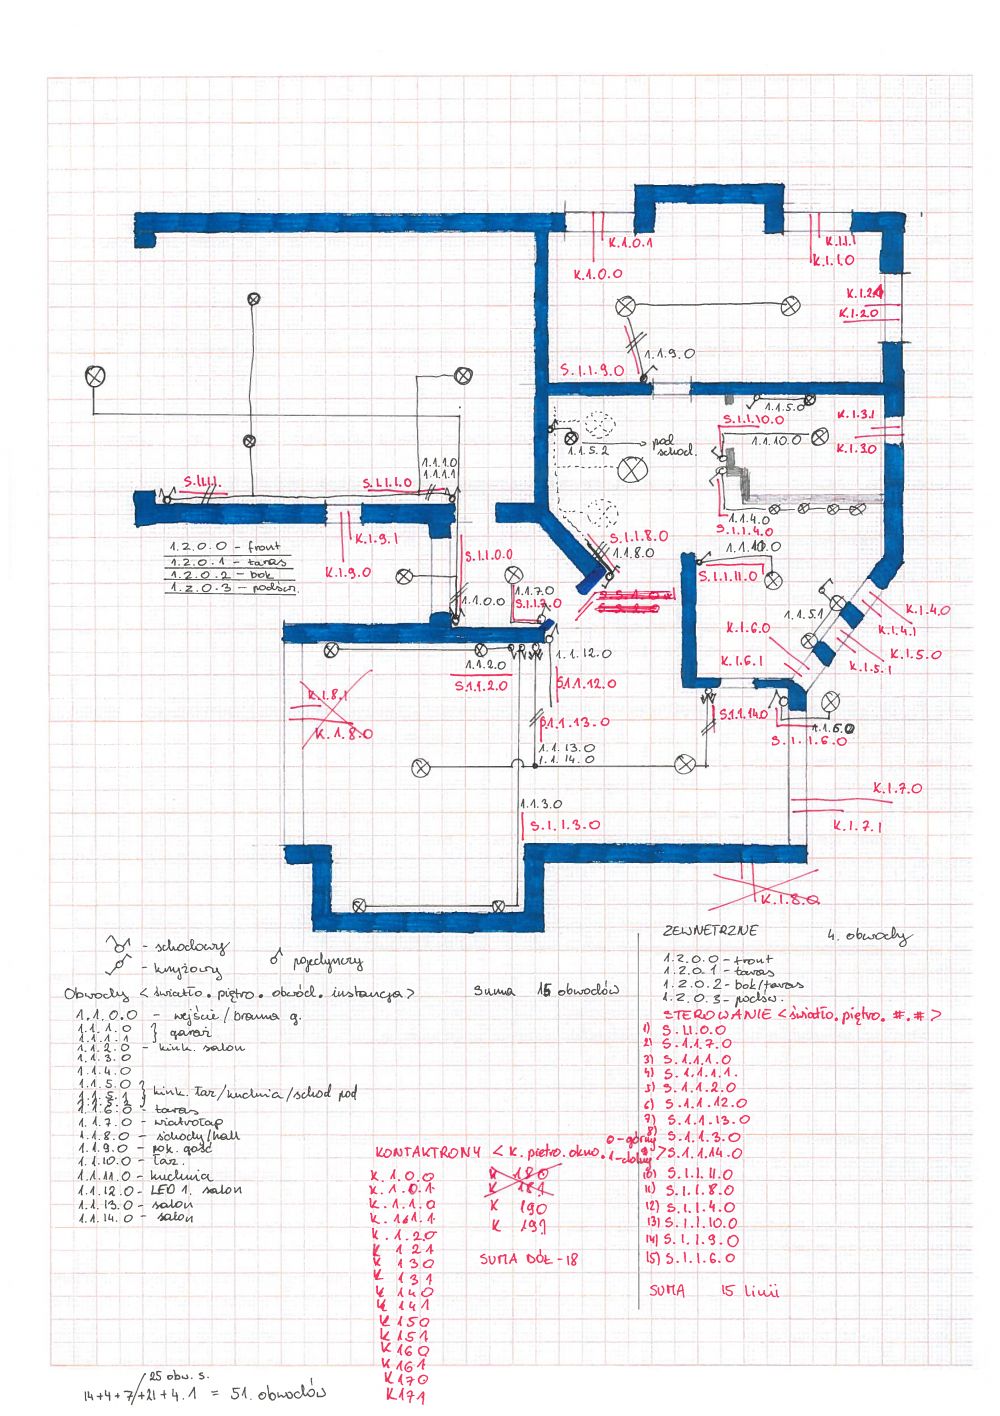 K.1.0.1
K.1.0.0
K.1.1.1
K.1.1.0
K.1.2.1
K.1.2.0
S.1.1.9.0
1.1.9.0
1.1.5.0
S.1.1.10.0
1.1.10.0
K.1.3.1
K.1.3.0
1.1.5.2
pod
schod.
S.1.1.1.1.
S.1.1.1.0
1.1.1.0
1.1.1.1
1.1.4.0
S.1.1.4.0
1.2.0.0 - front
1.2.0.1 - taras
1.2.0.2 - bok
1.2.0.3 - podśw.
K.1.9.1
K.1.9.0
S.1.1.0.0
1.1.0.0
1.1.7.0
S.1.1.7.0
S.1.1.8.0
1.1.8.0
S.1.1.11.0
1.1.5.1
K.1.4.0
K.1.4.1
K.1.5.0
K.1.5.1
K.1.6.0
K.1.6.1
1.1.2.0
S.1.1.2.0
1.1.12.0
S.1.1.12.0
S.1.1.13.0
1.1.13.0
1.1.14.0
S.1.1.14.0
1.1.6.0
S.1.1.6.0
K.1.8.1
K.1.8.0
K.1.7.0
K.1.7.1
1.1.3.0
S.1.1.3.0
K.1.8.0
- schodowy
- krzyżowy
pojedynczy
Obwody < światło. piętro. obwód. instancja >
suma 15 obwodów
1.1.0.0 - wejście / brama g.
1.1.1.0
1.1.1.1 } garaż
1.1.2.0 - kink. salon
1.1.3.0
1.1.4.0
1.1.5.0
1.1.5.1 } kink. łaz/kuchnia/schod pod
1.1.5.2
1.1.6.0 - taras
1.1.7.0 - wiatrołap
1.1.8.0 - schody/hall
1.1.9.0 - pok. gość
1.1.10.0 - łaz.
1.1.11.0 - kuchnia
1.1.12.0 - LED 1. salon
1.1.13.0 - salon
1.1.14.0 - salon
ZEWNĘTRZNE 4. obwody
1.2.0.0 - front
1.2.0.1 - taras
1.2.0.2 - bok/taras
1.2.0.3 - podśw.
STEROWANIE < światło. piętro. #.# >
1) S.1.1.0.0
2) S.1.1.7.0
3) S.1.1.1.0
4) S.1.1.1.1.
5) S.1.1.2.0
6) S.1.1.12.0
7) S.1.1.13.0
8) S.1.1.3.0
9) S.1.1.14.0
10) S.1.1.11.0
11) S.1.1.8.0
12) S.1.1.4.0
13) S.1.1.10.0
14) S.1.1.9.0
15) S.1.1.6.0
SUMA 15 linii
KONTAKTRONY < K. piętro. okno. 0-górny 1-dolny >
K.1.0.0
K.1.0.1
K.1.1.0
K.1.1.1
K.1.20
K 121
K 130
K 131
K 140
K 141
K 150
K 151
K 160
K 161
K 170
K 171
K 180
K 181
K 190
K 191
SUMA DÓŁ - 18
25 obw. s.
14+4+7/+21+4.1 = 51. obwodów